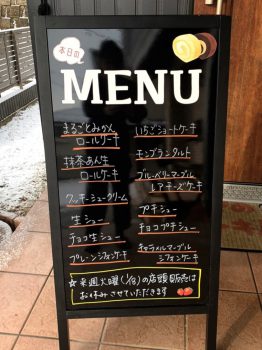 本日の
MENU
まるごとみかん
ロールケーキ
抹茶あん生
ロールケーキ
クッキーシュークリーム
生シュー
チョコ生シュー
プレーンシフォンケーキ
いちごショートケーキ
モンブランタルト
ブルーベリーマーブル
レアチーズケーキ
プチシュー
チョコプチシュー
キャラメルマーブル
シフォンケーキ
☆来週火曜(1/8)の店頭販売は
お休みさせていただきます